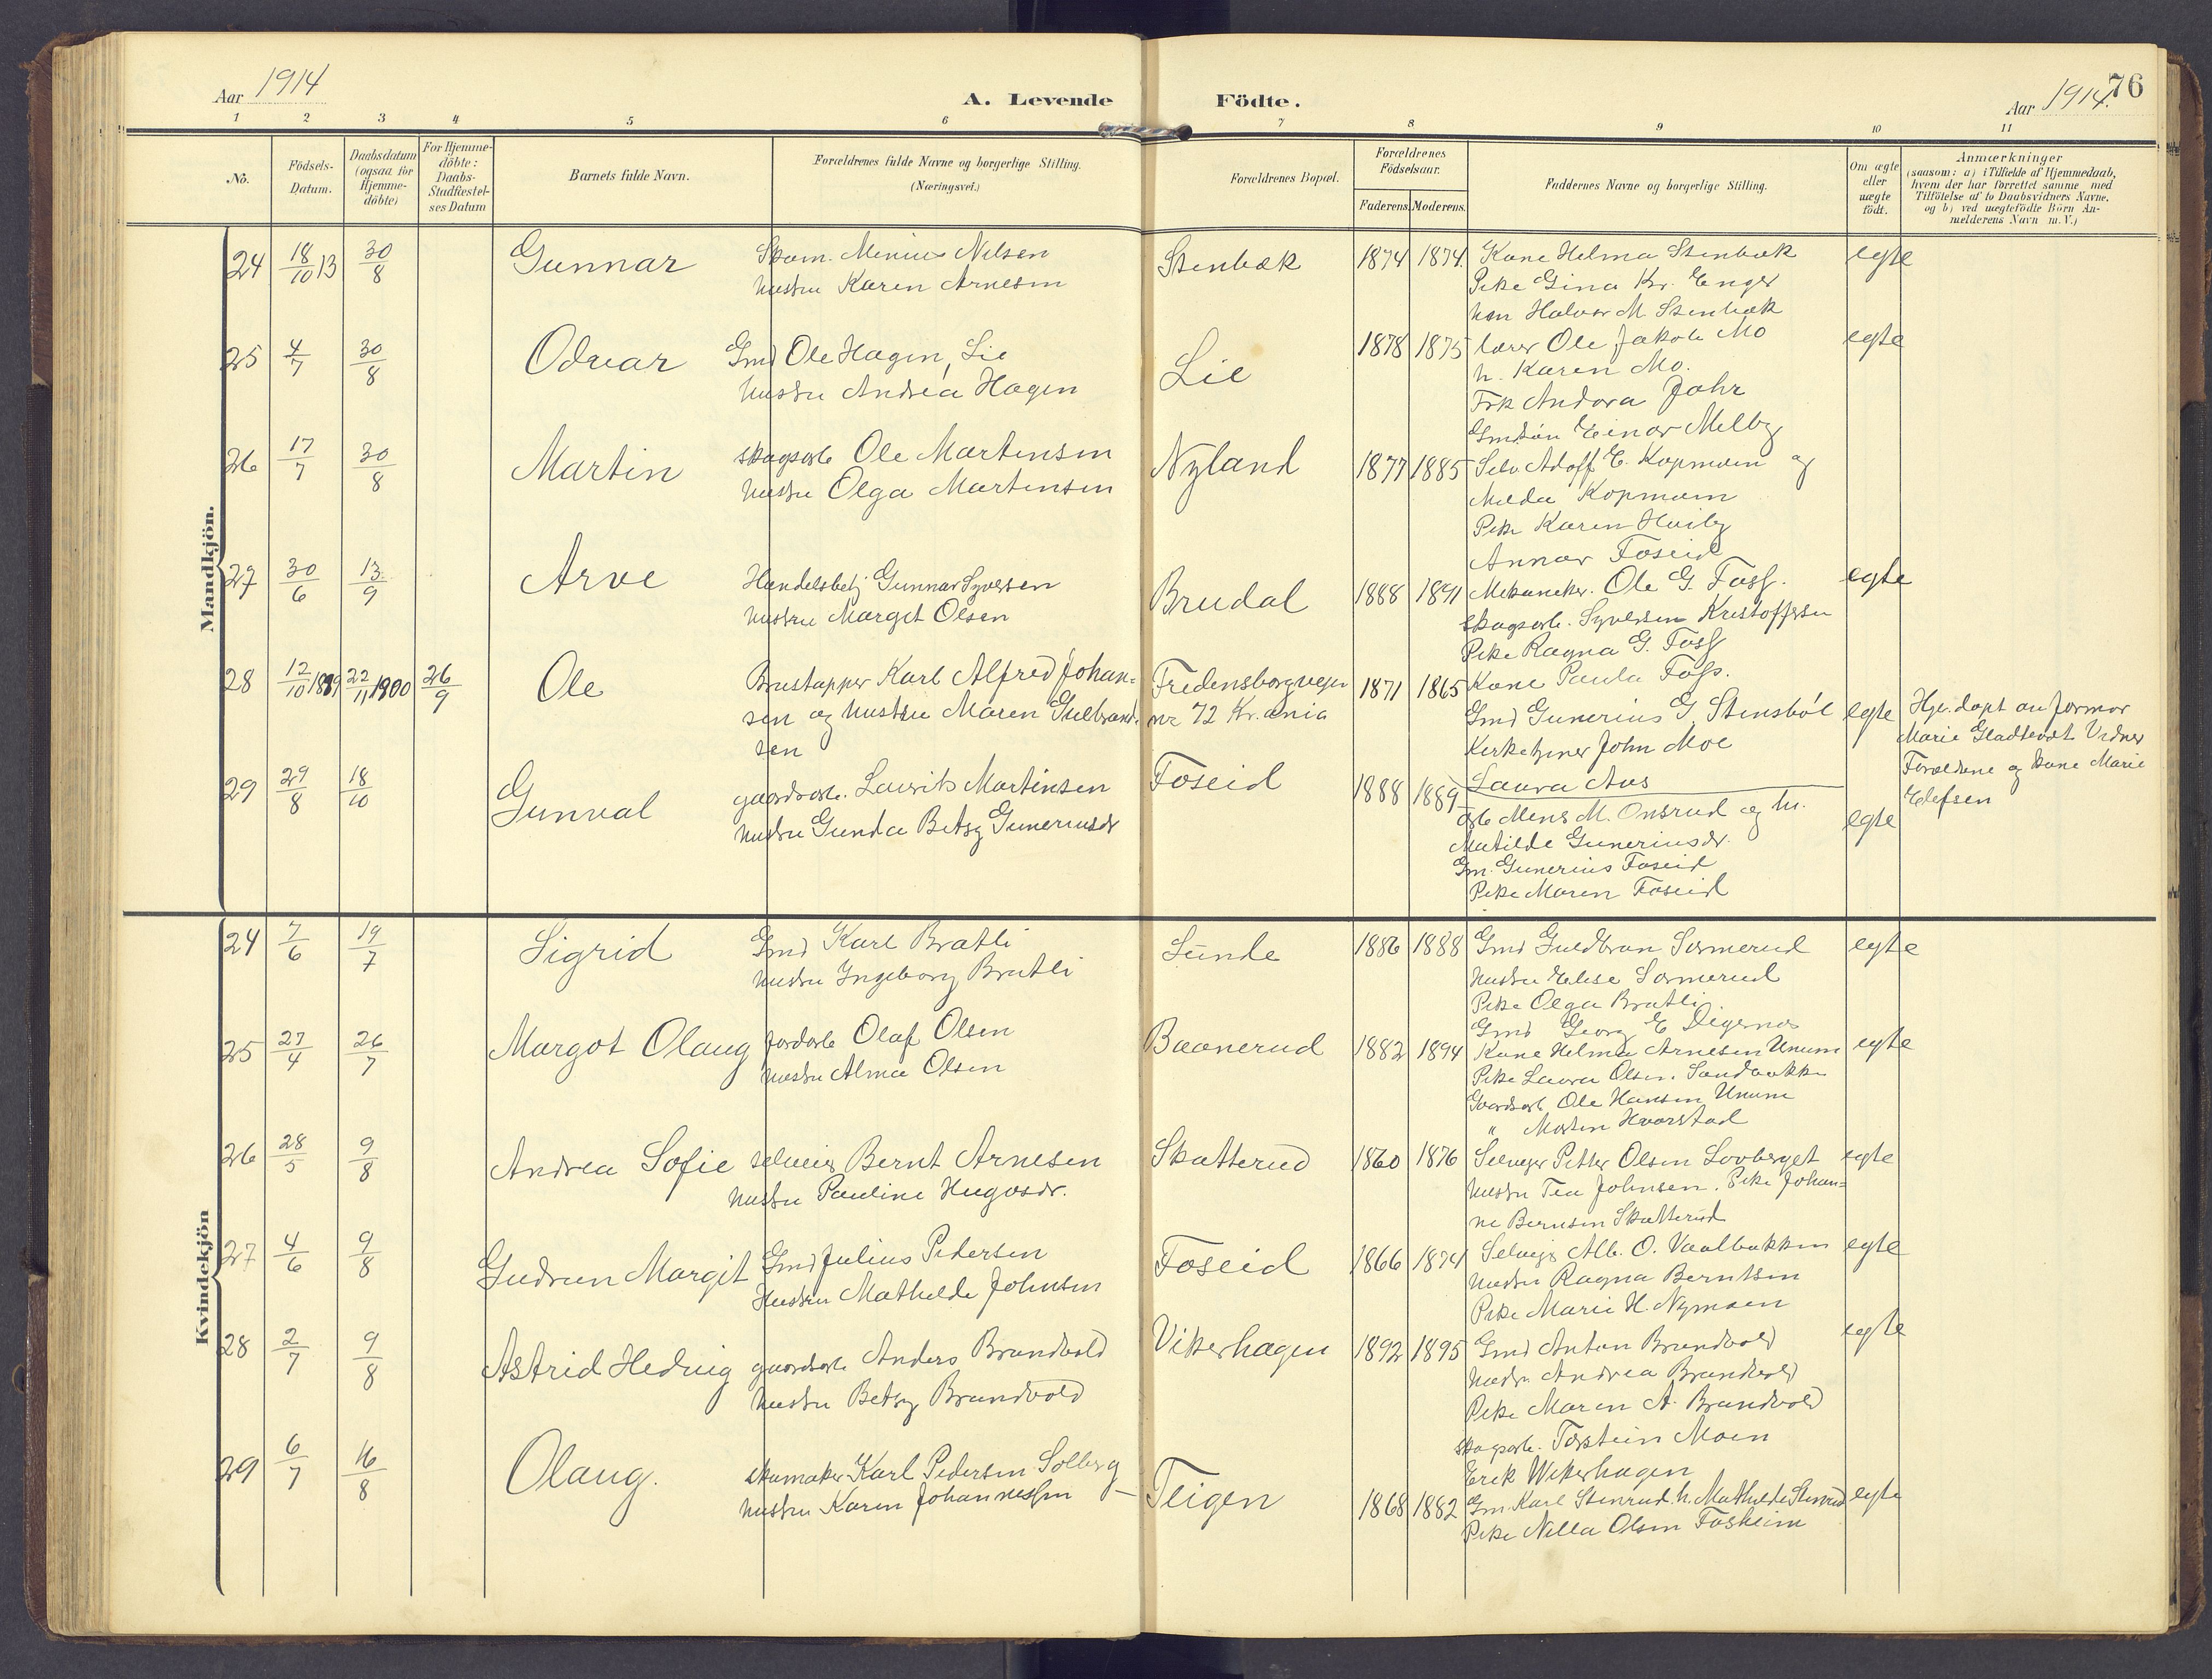 Aar 1914
A. Levende Födte.
Aar 1914.
76
1 2 3 4 5 6 7 8 9 10 11
No.
Födsels-
Datum.
Daabsdatum
(ogsaa for
Hjemme-
döbte)
For Hjemme-
döbte:
Daabs-
Stadfæstel-
ses Datum
Barnets fulde Navn.
Forældrenes fulde Navne og borgerlige Stilling.
(Næringsvei.)
Forældrenes Bopæl.
Forældrenes
Födselsaar.
Faderens. Moderens.
Faddernes Navne og borgerlige Stilling.
Om ægte
eller
uægte
födt.
Anmærkninger
(saasom: a) i Tilfælde af Hjemmedaab,
hvem der har forrettet samme med
Tilföielse af to Daabsvidners Navne.
og b) ved uægtefödte Börn An-
melderens Navn m. V.)
Mandkjön.
24 18/10 13 30/8 Gunnar
Skom. Menius Nilsen
hustru Karen Arnesen
Stenbæk 1874 1874.
Kone Helma Stenbæk
Pike Gina Kr. Enger
Halvor M. Stenbæk
egte
25 4/7 30/8 Odvar
Gmd Ole Hagen, Lie
hustru Andrea Hagen
Lie 1878 1875
lærer Ole Jakob Mo
h. Karen Mo.
Frk Andora Johr
Gmdsøn Einar Melby
egte
26 17/7 30/8 Martin
skogsarb Ole Martinsen
hustru Olga Martinsen
Nyland 1877 1885
Selv Adolf E. Kopmoen og
Milda Kopmoen
Pike Karen Huiby
Annar Foseid
27 30/6 13/9 Arve
Handelsbetj Gunnar Syversen
hustru Margit Olsen
Brudal 1888 1891
Mekaneker. Ole G. Foss.
skogsarb. Syversen Kristoffersen
Pike Ragna G. Foss
Kone Paula Foss.
egte
28 12/10 1899 22/11 1900 26/9 Ole
Brustapper Karl Alfred Johan=
sen og hustru Maren Gulbrand-
sen
Fredensborgveien
nr 72 Kr.ania
1871 1865
Gmd Gunerius G. Stensbøl
Kirketjener John Moe
Laura Aas
egte
Hje.døpt av farmor
Marie Gladtvedt Vidner
Foreldrene og kone Marie
Elefsen
29 29/8 18/10 Gunval
gaardsarb. Laurits Martinsen
hustru Gunda Betsy Guneriusdr
Foseid 1888 1889
Mens M. Onsrud og h.
Matilde Guneriusdr.
Gm. Gunerius Foseid
Pike Maren Foseid
egte
Kvindekjön
24 7/6 19/7 Sigrid
Gmd Karl Bratli
hustru Ingeborg Bratli
Sunde 1886 1888
Gmd Guldbran Sormerud
hustru Elise Sormerud
Pike Olga Bratli.
Gmd Georg E Digernes
egte
25 27/4 26/7 Margot Olaug
jordarb Olaf Olsen
hustru Alma Olsen
Baanerud 1882 1894
Kone Helma Arnesen Unum
Pike Laura Olsen. Sandbakke
Gaardsarb Ole Hansen Unum
" Morten Hvorstad
egte
26 28/5 9/8 Andrea Sofie
selveier Bernt Arnesen
hustru Pauline Hugosdr.
Skatterud 1860 1876
Selveger Petter Olsen Lovberget
hustru Tea Johnsen. Pike Johan=
ne Bernsen Skatterud
egte
27 4/6 9/8 Gudrun Margit
Gmd Julius Pedersen
Hustru Mathilde Johnsen
Foseid 1866 1874
Selveger Alb. O. Vaalbakken
hustru Ragna Berntsen
Pike Marie H. Nymoen
egte
28 2/7 9/8 Astrid Hedvig
gaardsarb Anders Brandvold
hustru Betsy Brandvold
Vikerhagen 1892 1895
Gmd Anton Brandvold
hustr. Andrea Brandvold
Pike Maren A. Brandvold
skogsarb. Torstein Moen
Erik Wikerhagen
egte
29 6/7 16/8 Olaug.
skomaker Karl Pedersen Solberg
hustru Karen Johannessen
Teigen 1868 1882
Gm. Karl Stenrud h. Mathilde Stenrud
Pike Nilla Olsen Fosheim
egte